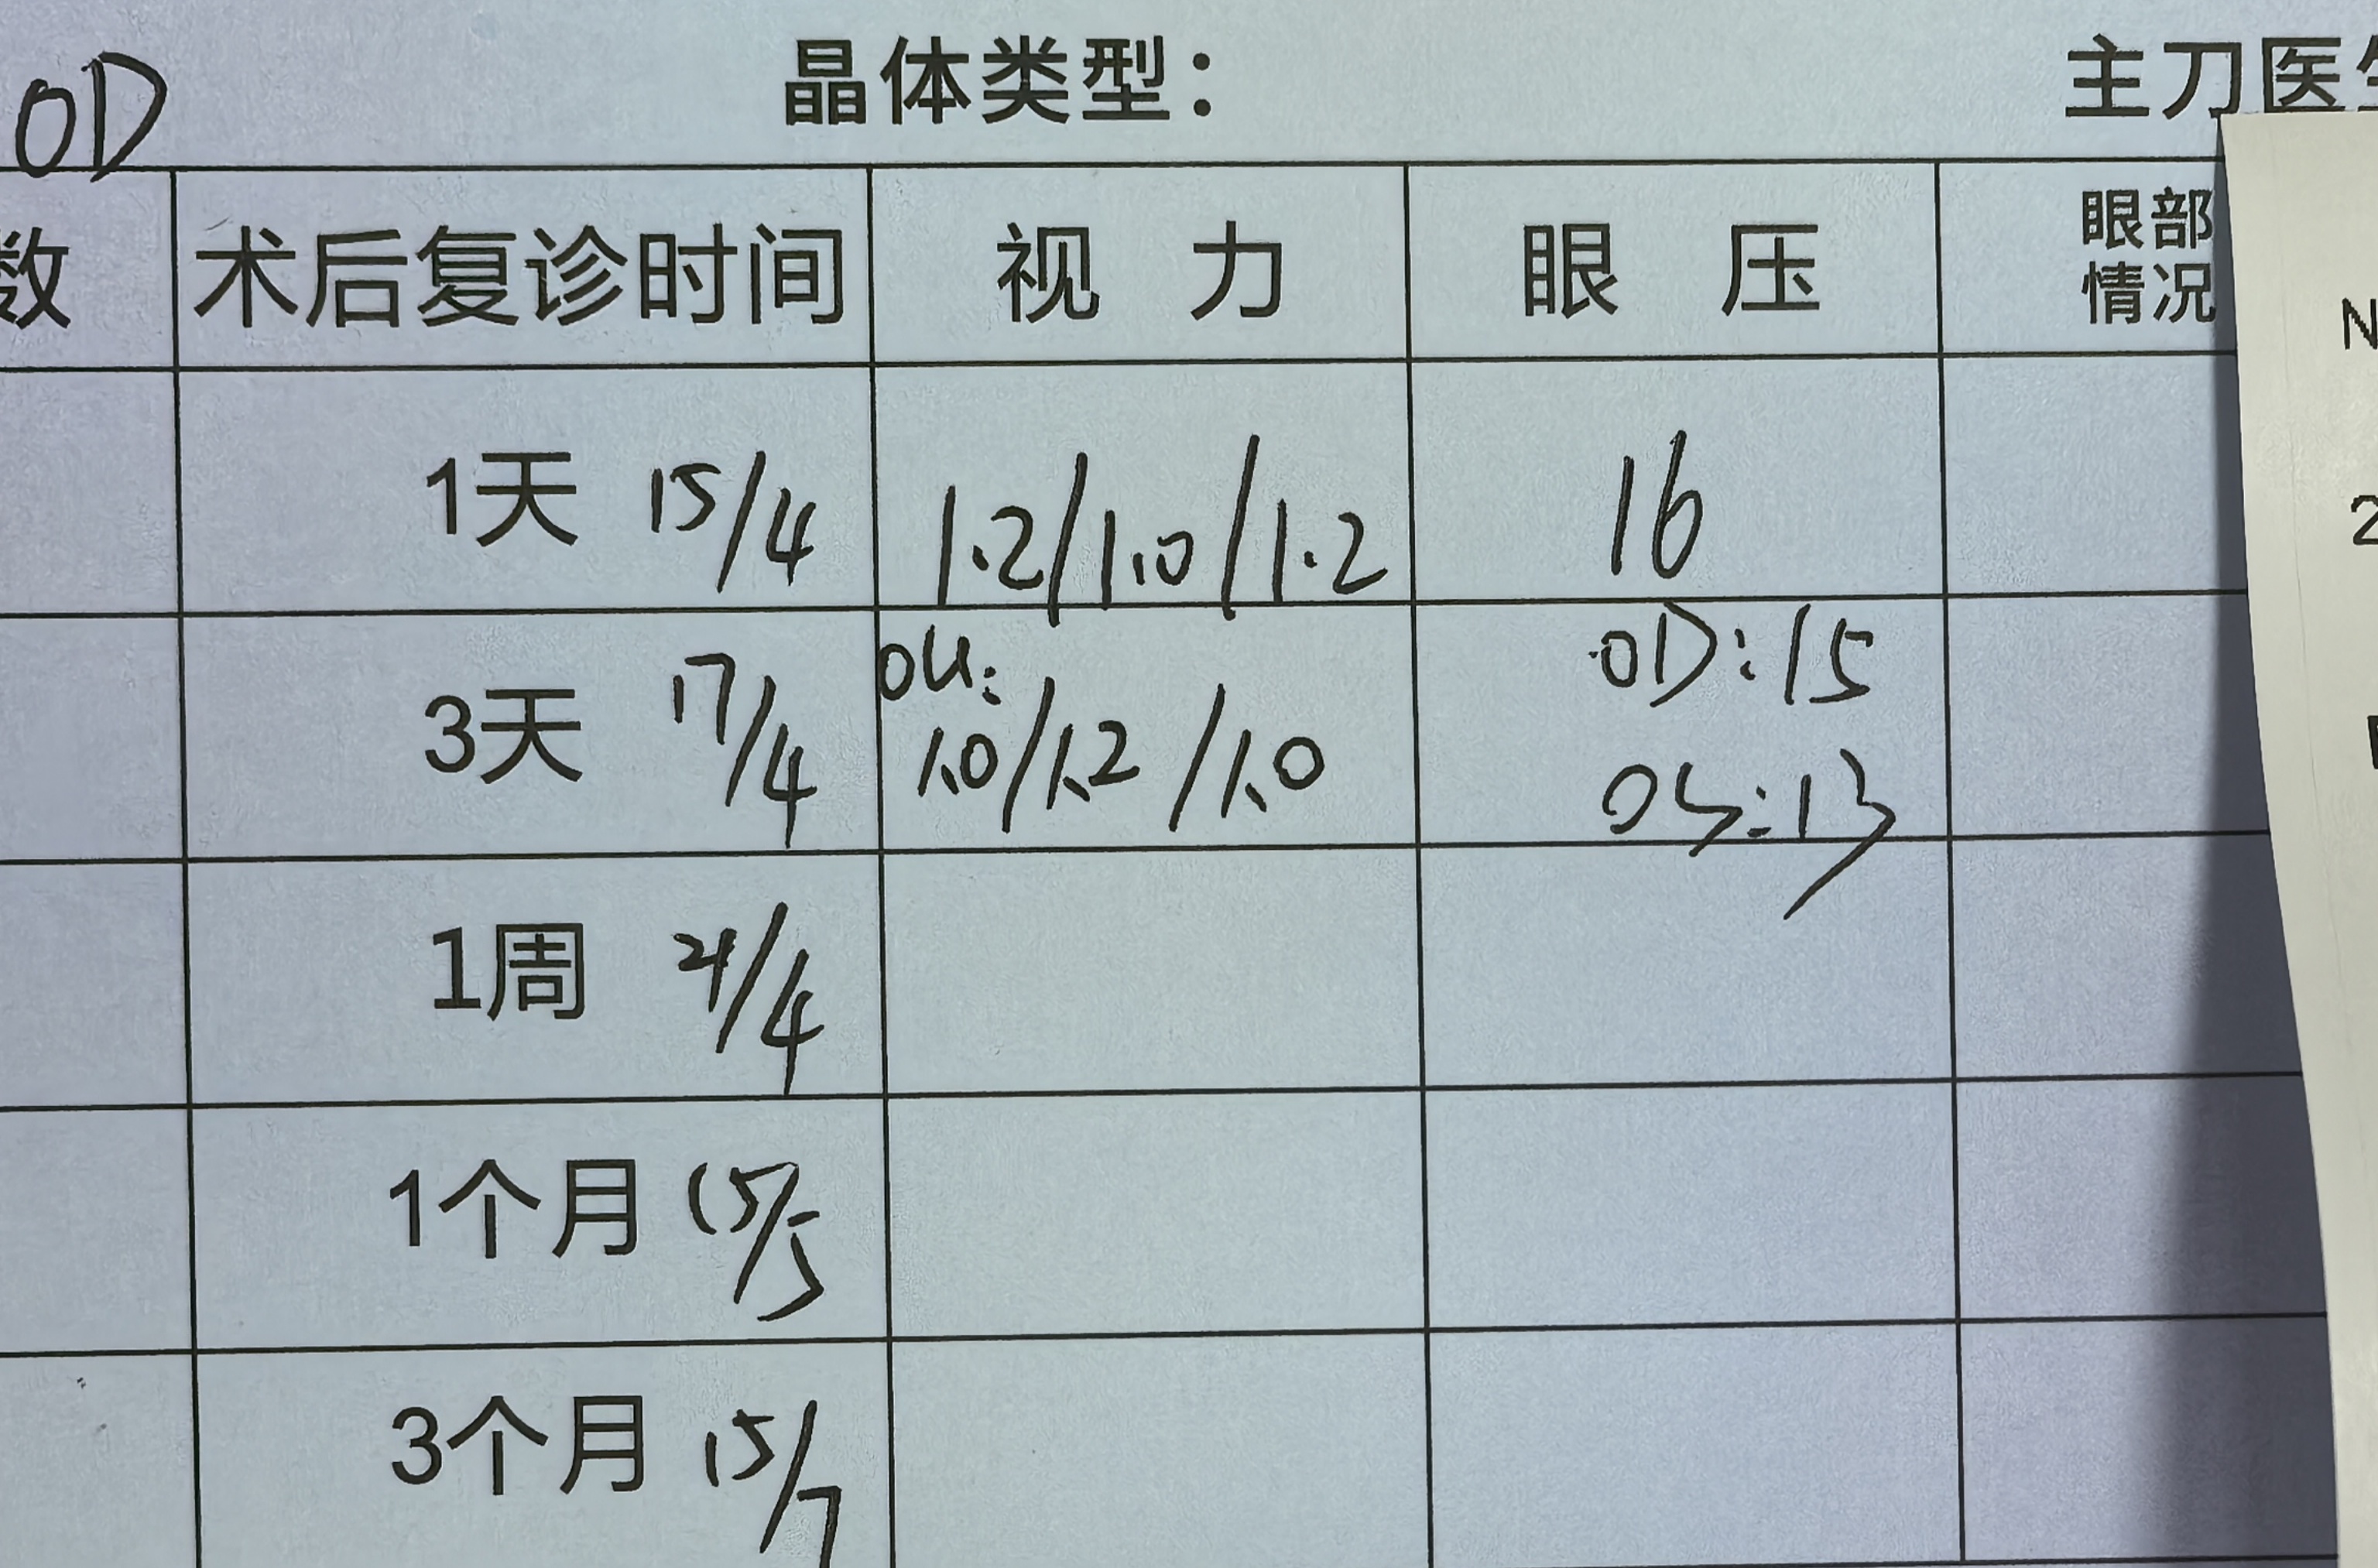 OD 晶体类型： 主刀医
数 术后复诊时间 视 力 眼 压 眼部
情况
1天 15/4 1.2/1.0/1.2 16
3天 17/4 OU: 1.0/1.2/1.0 OD:15
OS:13
1周 21/4
1个月 15/5
3个月 15/7
N
2